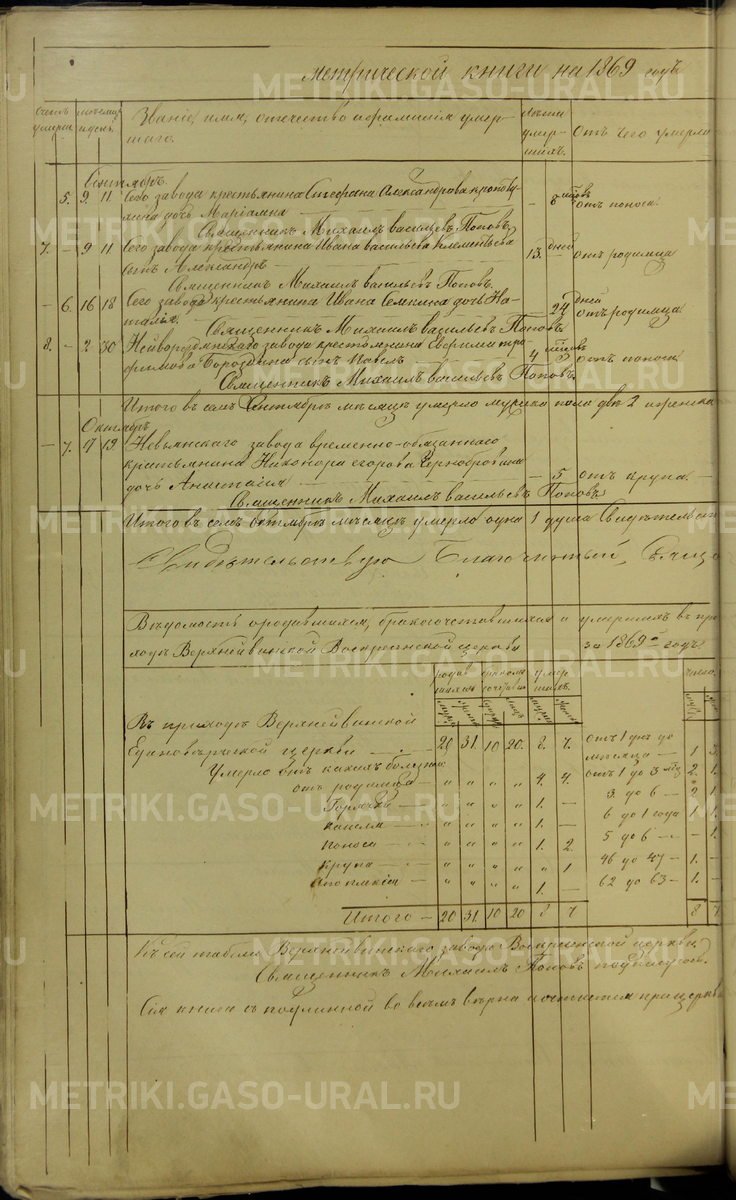 метрической книги на 1869 годъ
Счетъ умерш. месяцъ и день. Званiе, имя, отечество и фамилiя умершаго. Лѣта умершихъ. Отъ чего умерли
Сентябрь.
5. 9 11 Сего завода крестьянина Стефана Александрова
дочь Марiамна — 6 мѣсяцъ отъ поноса
Священникъ Михаилъ Васильевъ Поповъ
7. – 9 11 Сего завода крестьянина Ивана Васильева Клементьева
сынъ Александръ — 13. дней отъ родимца
Священникъ Михаилъ Васильевъ Поповъ.
– 6. 16 18 Сего завода крестьянина Ивана Семкина дочь На-
талiя. — 24 дней отъ родимца
Священникъ Михаилъ Васильевъ Поповъ
8. – 2 30 Нейворуднянскаго завода крестьянина
Бороздина сынъ Павелъ — 4 отъ поноса
Священникъ Михаилъ Васильевъ Поповъ.
Итого въ семъ Сентябрѣ мѣсяцѣ умерло мужска пола двѣ 2 и женска
Октябрь.
– 7. 17 19 Невьянскаго завода временно-обязаннаго
крестьянина Никонора Егорова Чернобровина
дочь Анастасiя — 5 отъ крупа. —
Священникъ Михаилъ Васильевъ Поповъ
Итого въ семъ Октябрѣ мѣсяцѣ умерло одна 1 душа
Свидѣтельствую Благочинный,
Вѣдомость о родившихся, бракосочетавшихся и умершихъ въ при-
ходѣ Верхнейвинской Воскресенской церкви за 1869й годъ
родившихся бракомъ сочетавш. умершихъ. число.
Въ приходѣ Верхнейвинской
Единовѣрческой церкви — 20 31. 10 20. 8. 7. отъ 1 дня до мѣсяца — 1. 3.
Умерло отъ какихъ болезней:
отъ родимца — „ „ „ „ 4. 4. отъ 1 до 3 мѣс. 2. 1.
Горячки — „ „ „ „ 1. — 3. до 6 — 2. 1.
кашля — „ „ „ „ 1. — 6 до 1 года 1. 1.
поноса „ „ „ „ 1. 2. 5 до 6 — – 1.
крупа — „ „ „ „ „ 1 46 до 47 — 1. –
Апоплексiи — „ „ „ „ 1. — 62 до 63 — 1. –
Итого — 20 31 10 20 8 7 8 7
Къ сей табели Верхнейвинскаго завода Воскресенской церкви
Священникъ Михаилъ Поповъ подписуюсь.
Сiя книга съ подлинной во всемъ вѣрна и при церкви
METRIKI.GASO-URAL.RU